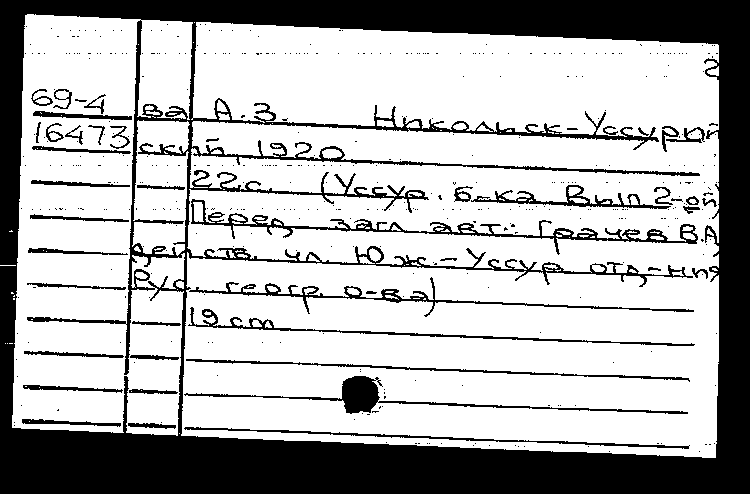 2
69-4 ва А.З. Никольск-Уссурий
16473 ский, 1920
22с. (Уссур. б-ка Вып 2-ой)
Перед загл авт.: Грачев В.А,
действ. чл. Юж.-Уссур отд-ния
Рус. геогр о-ва)
19 cm